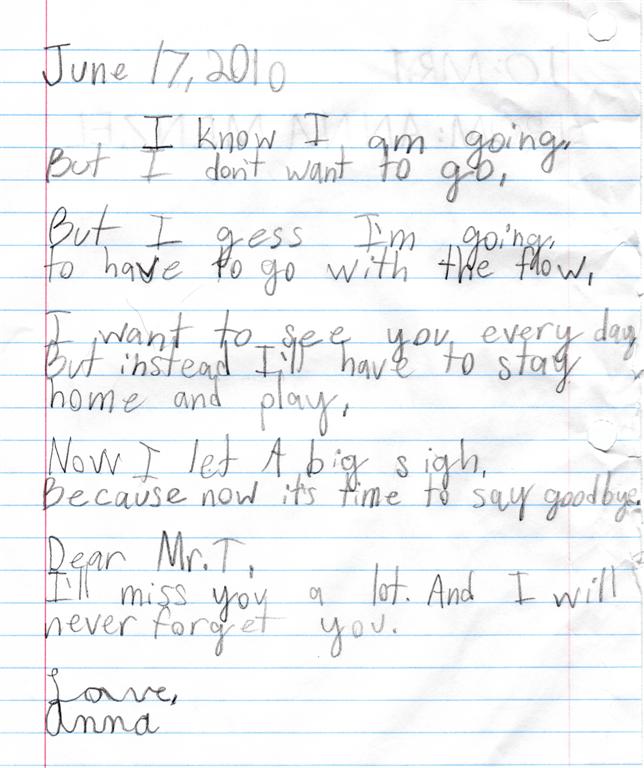 June 17, 2010
I know I am going,
But I don't want to go,
But I gess I'm going,
to have to go with the flow,
I want to see you every day,
But instead I'll have to stay
home and play,
Now I let A big sigh,
Because now it's time to say goodbye.
Dear Mr. T,
I'll miss you a lot. And I will
never forget you.
Love,
Anna